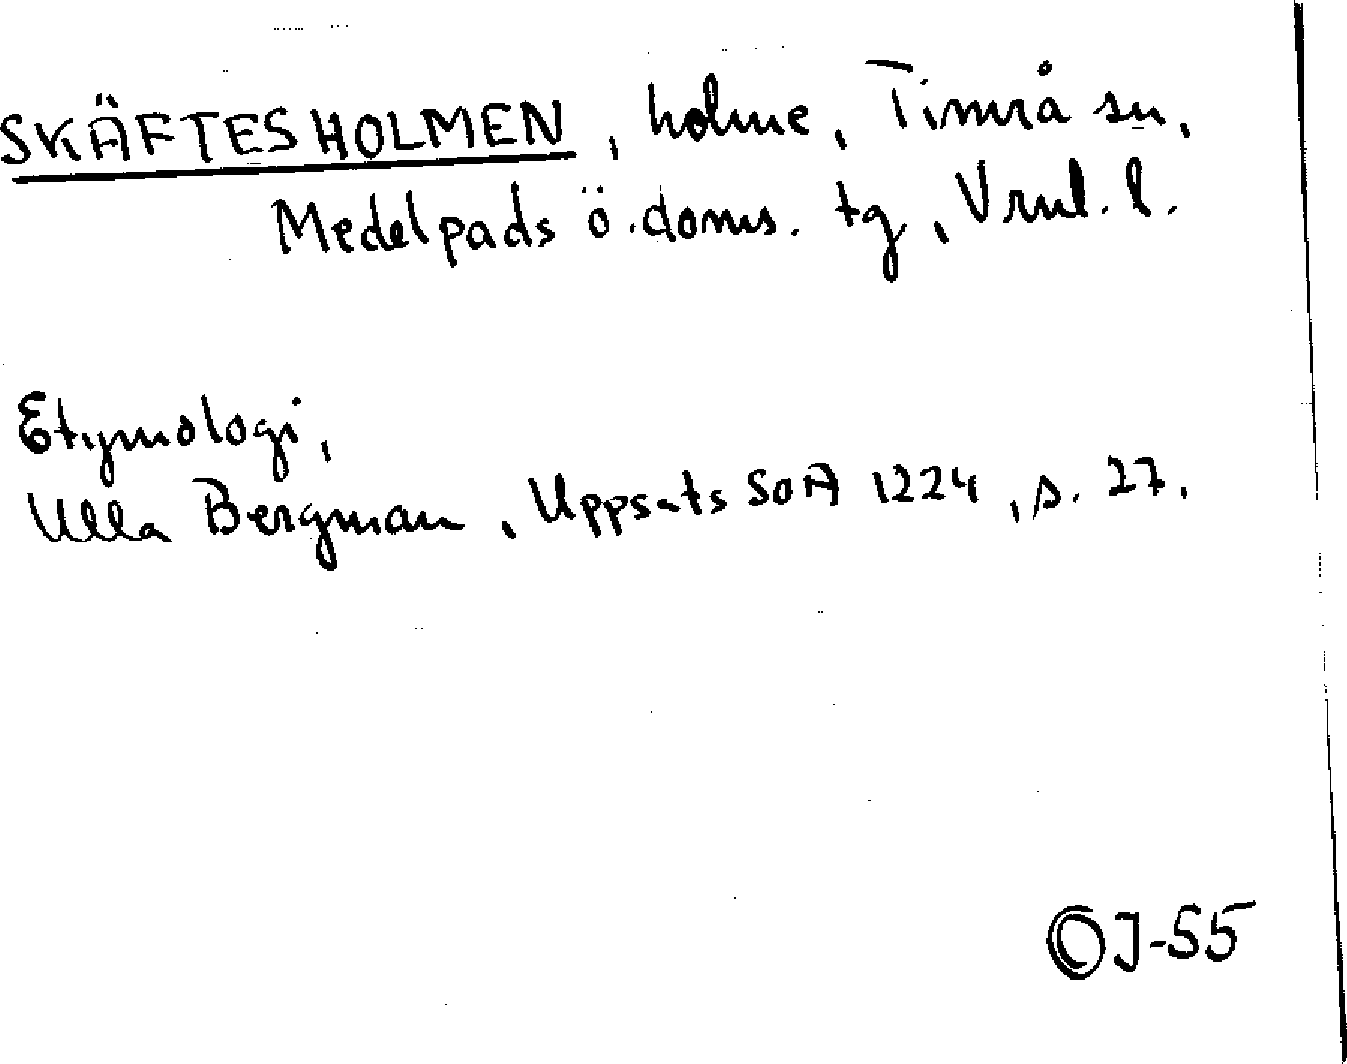 SKÄFTESHOLMEN, holme, Timrå sn,
Medelpads ö. doms. tg, Vrnl. l.
Etymologi,
Ulla Bergman, Uppsats SOA 1224, s. 27.
©J-55